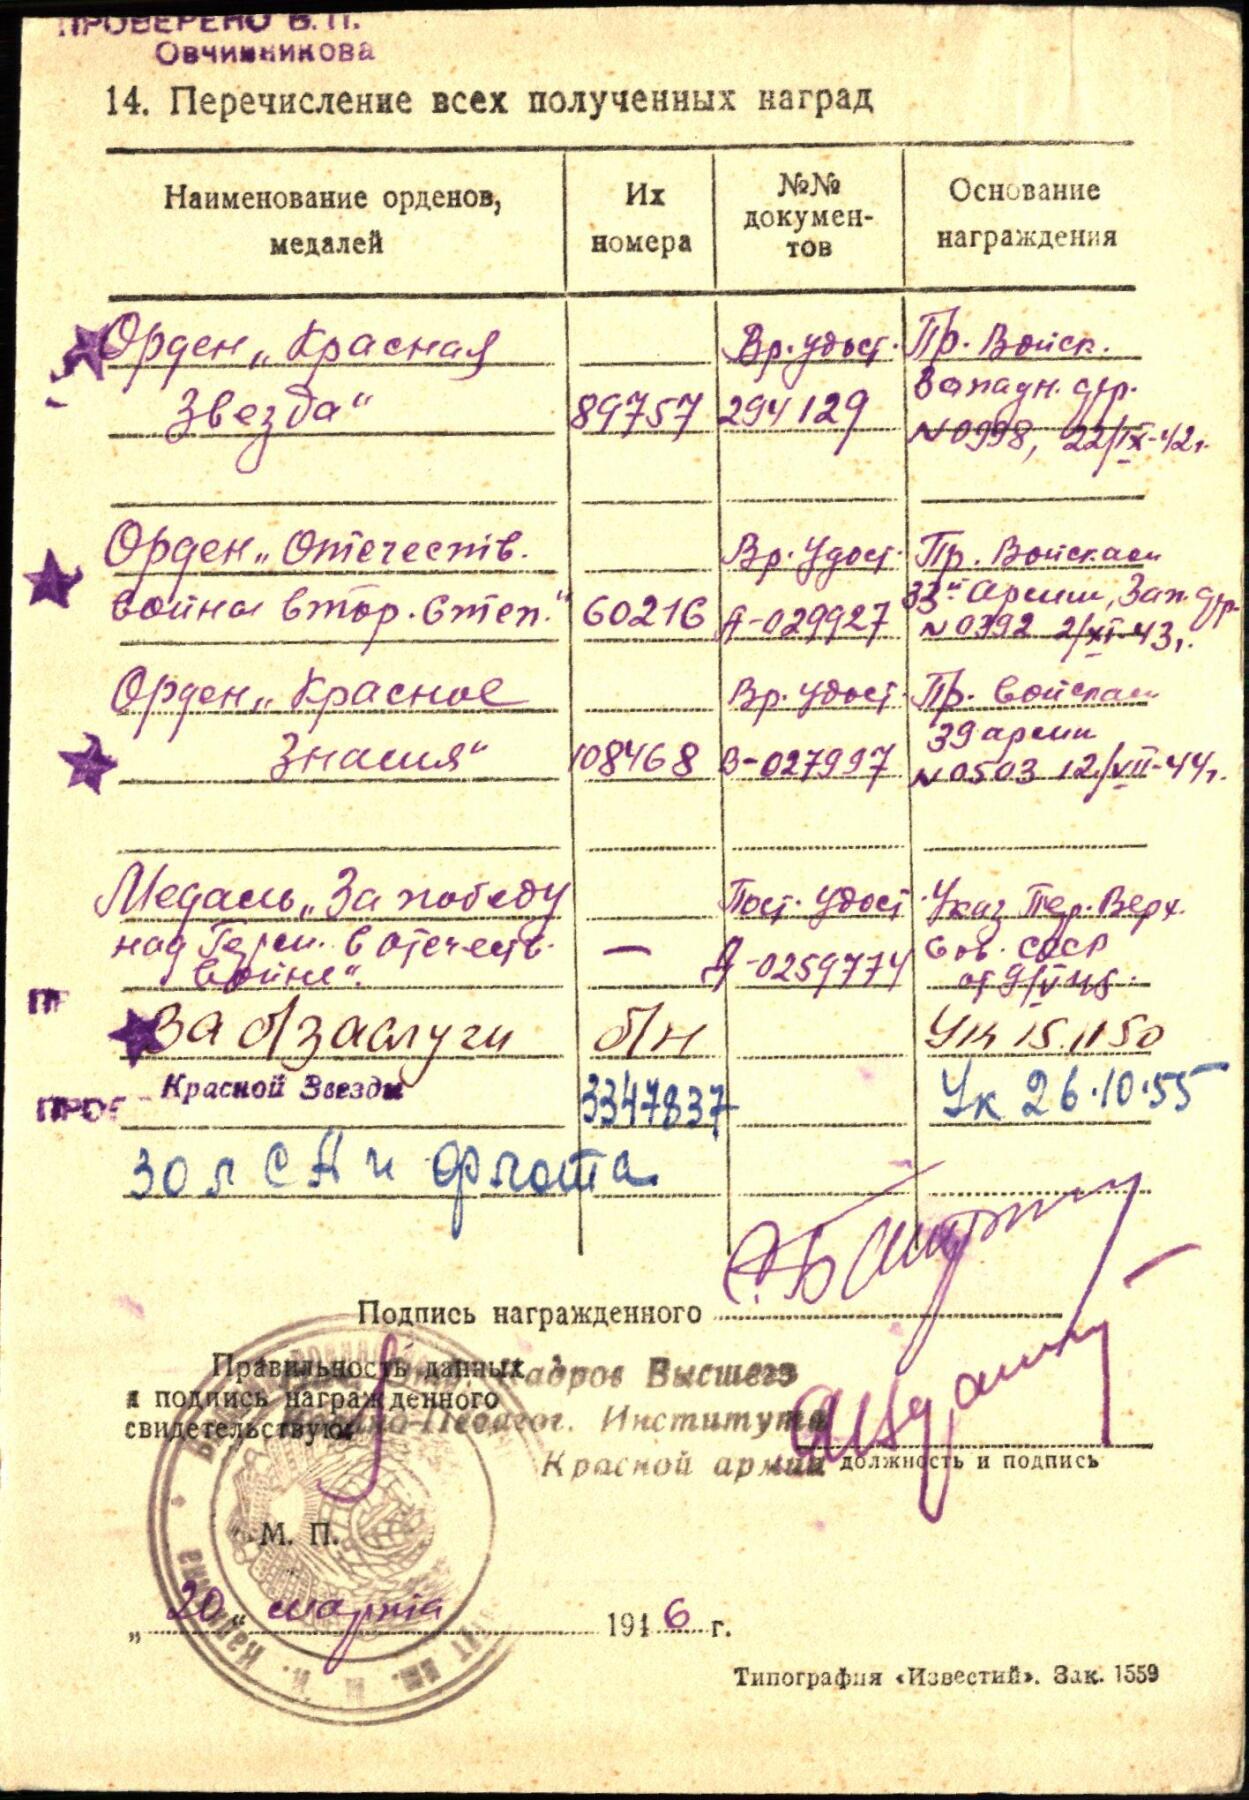 ПРОВЕРЕНО В. П.
Овчинникова
14. Перечисление всех полученных наград
Наименование орденов, медалей
Их номера
№№ документов
Основание награждения
Орден „Красная Вр. удост. Пр. Войск.
Звезда“ 89757 294129 Западн. фр.
№ 0998, 22/IX-42г.
Орден „Отечеств. Вр. Удост. Пр. Войскам
войны втор. степ.“ 60216 А-029927 33й Армии, Зап. фр.
№ 0392 2/XI-43г.
Орден „Красное Вр. Удост. Пр. войскам
Знамя“ 108468 В-027997 39 армии
№ 0503 12/VII-44г.
Медаль „За победу Пост. Удост. Указ През. Верх.
над Герм. в отечеств. — Д-0259774 Сов. СССР
войне“. от 9/V-45.
За б/заслуги б/н Ук 15.11 50
Красной Звезды 3347837 Ук 26.10.55
ПР
ПРОВ
30 л СА и флота
Подпись награжденного
Правильность данных
и подпись награжденного
свидетельствую:
Кадров Высшего
Педагог. Института
Красной армии
должность и подпись
М. П.
„20“ марта 1946 г.
Типография «Известий». Зак. 1559